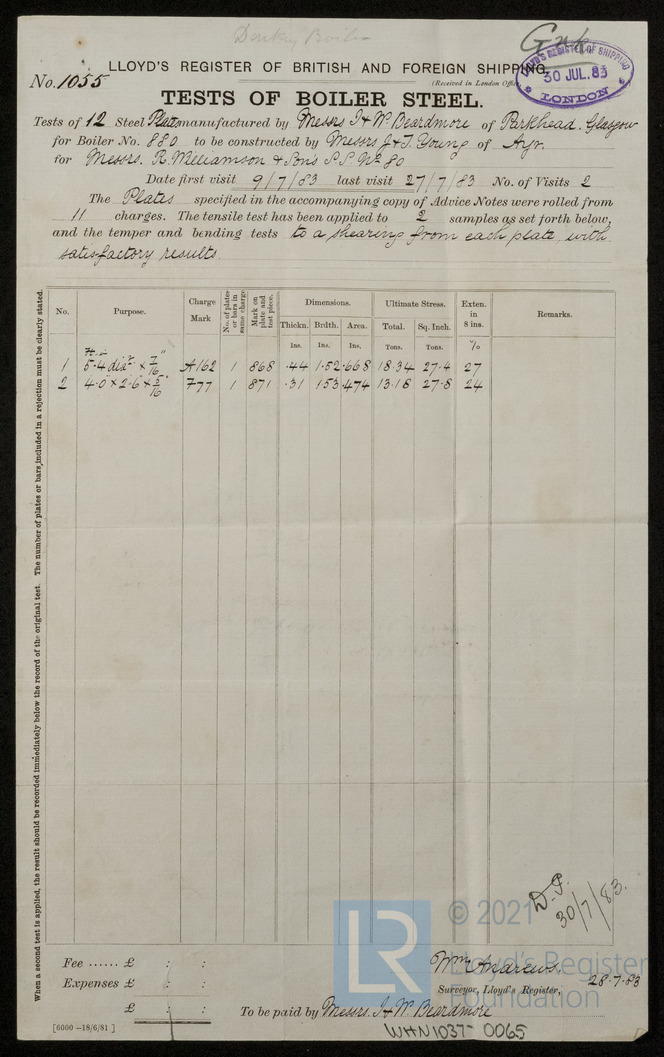 Donkey Boiler
Gnk
LLOYD'S REGISTER OF BRITISH AND FOREIGN SHIPPING
No. 1055
(Received in London Office
LLOYD'S REGISTER OF SHIPPING
30 JUL. 83
LONDON
TESTS OF BOILER STEEL.
Tests of 12 Steel Plates manufactured by Messrs I & W. Beardmore of Parkhead. Glasgow
for Boiler No. 880 to be constructed by Messrs J & T. Young of Ayr.
for Messrs. R. Williamson & Son's S.S. No. 80
Date first visit 9/7/83 last visit 27/7/83 No. of Visits 2
The Plates specified in the accompanying copy of Advice Notes were rolled from
11 charges. The tensile test has been applied to 2 samples as set forth below,
and the temper and bending tests to a shearing from each plate with
satisfactory results.
No. Purpose. Charge Mark No. of plates or bars in same charge Mark on plate and test piece. Dimensions. Ultimate Stress. Exten. in 8 ins. Remarks.
Thickn. Brdth. Area. Total. Sq. Inch.
Ins. Ins. Ins. Tons. Tons. %
1 5.4 diar × 7/16" A162 1 868 .44 1.52 .668 18.34 27.4 27
2 4.0 × 2.6 × 5/16" 777 1 871 .31 1.53 .474 13.18 27.8 24
When a second test is applied, the result should be recorded immediately below the record of the original test. The number of plates or bars, included in a rejection must be clearly stated.
D.P.
30/7/83.
© 2021
Lloyd's Register
Foundation
LR
Fee ...... £ : :
Expenses £ : :
£ : :
Wm Andrews.
Surveyor, Lloyd's Register,
28.7.83
To be paid by Messrs. I & W. Beardmore
[6000—18/6/81]
WHN1037-0065